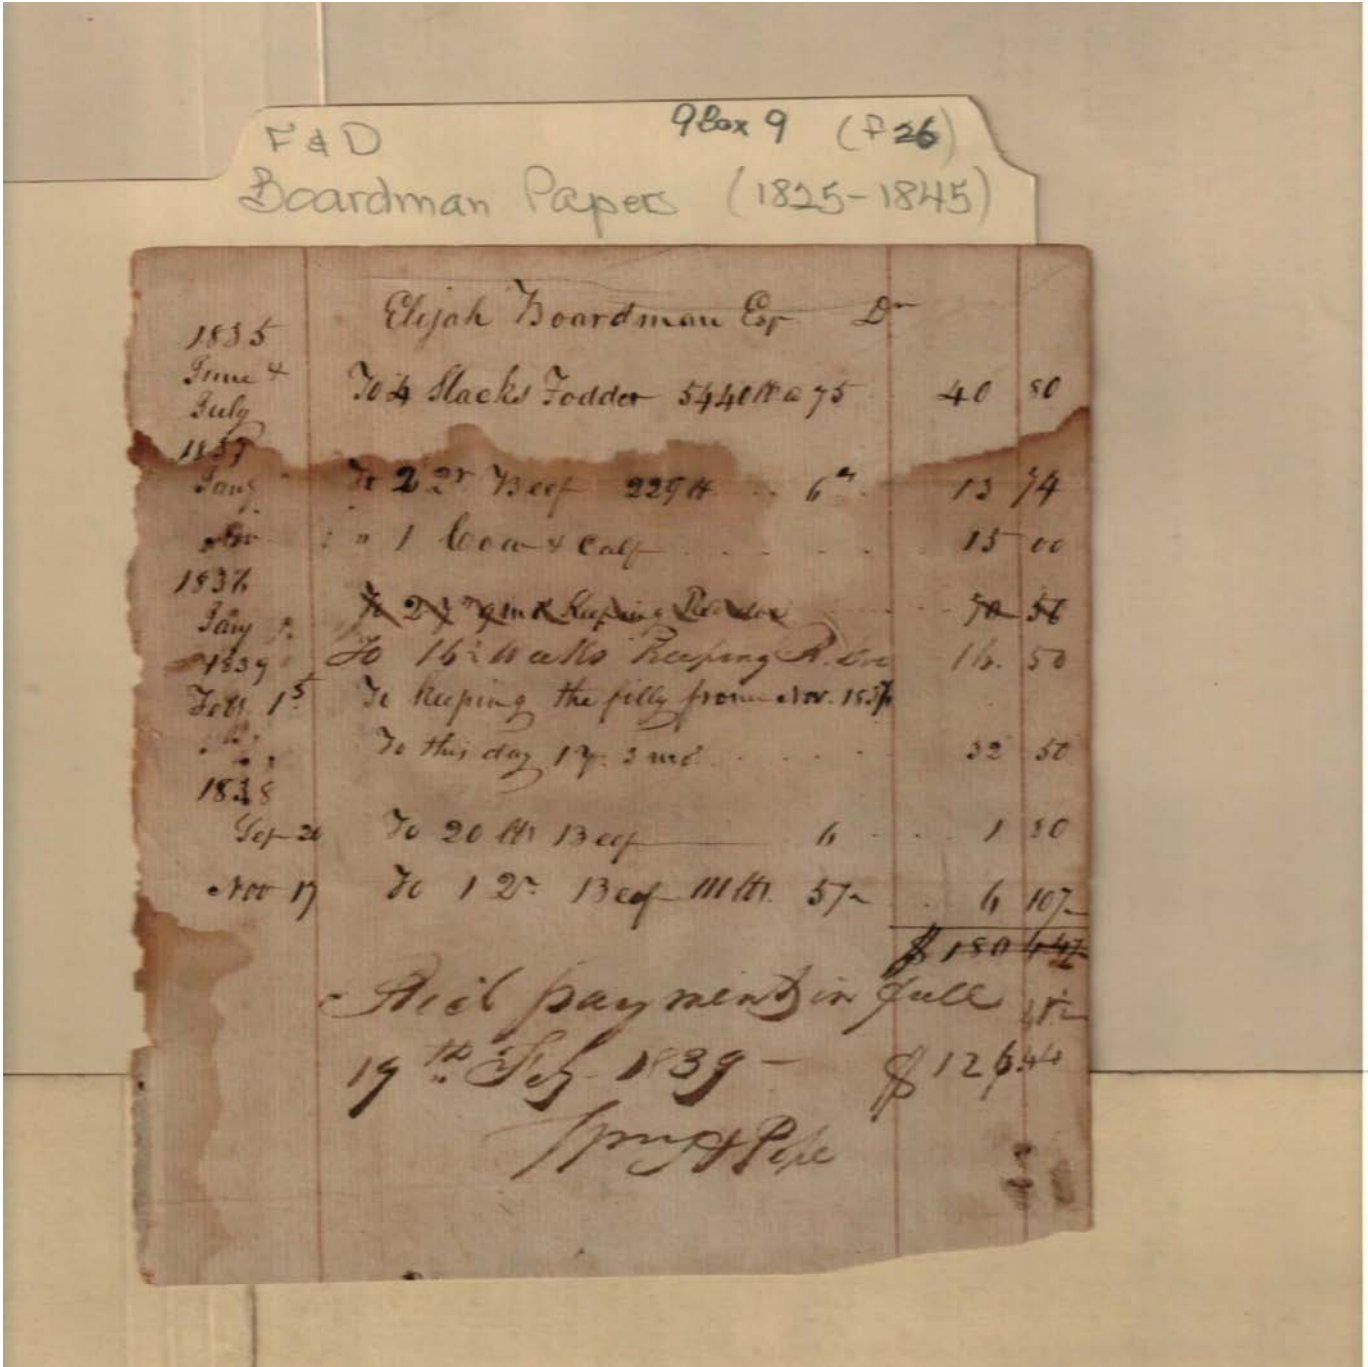 F & D 9Box 9 (f 26)
Boardman Papers (1825-1845)
Elijah Boardman Esqr Dr
1835
June &
July To 4 Stacks Fodder 5440 lb a 75 40 80
1837
Jany To 2 Qr Beef 229 lb 6 13 74
Nov " 1 Cow & Calf 15 00
1837
Jany To 2 Keeping
1839 To 16 Weeks Keeping R. 16. 50
Feb. 1st To keeping the filly from Nov. 1837
To this day 1 y. 3 mo. 32 50
1838
Sep 20 To 20 lbs Beef 6 1 20
Nov 17 To 1 Qr Beef 111 lbs. 5½ 6 10½
$ 180
Recd payment in full
19th Feby 1839 - $ 126.44
Wm H Pope